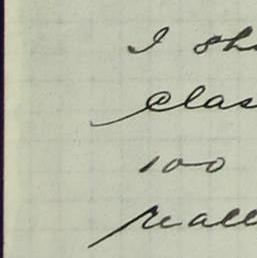 I sh
clas
100
reall